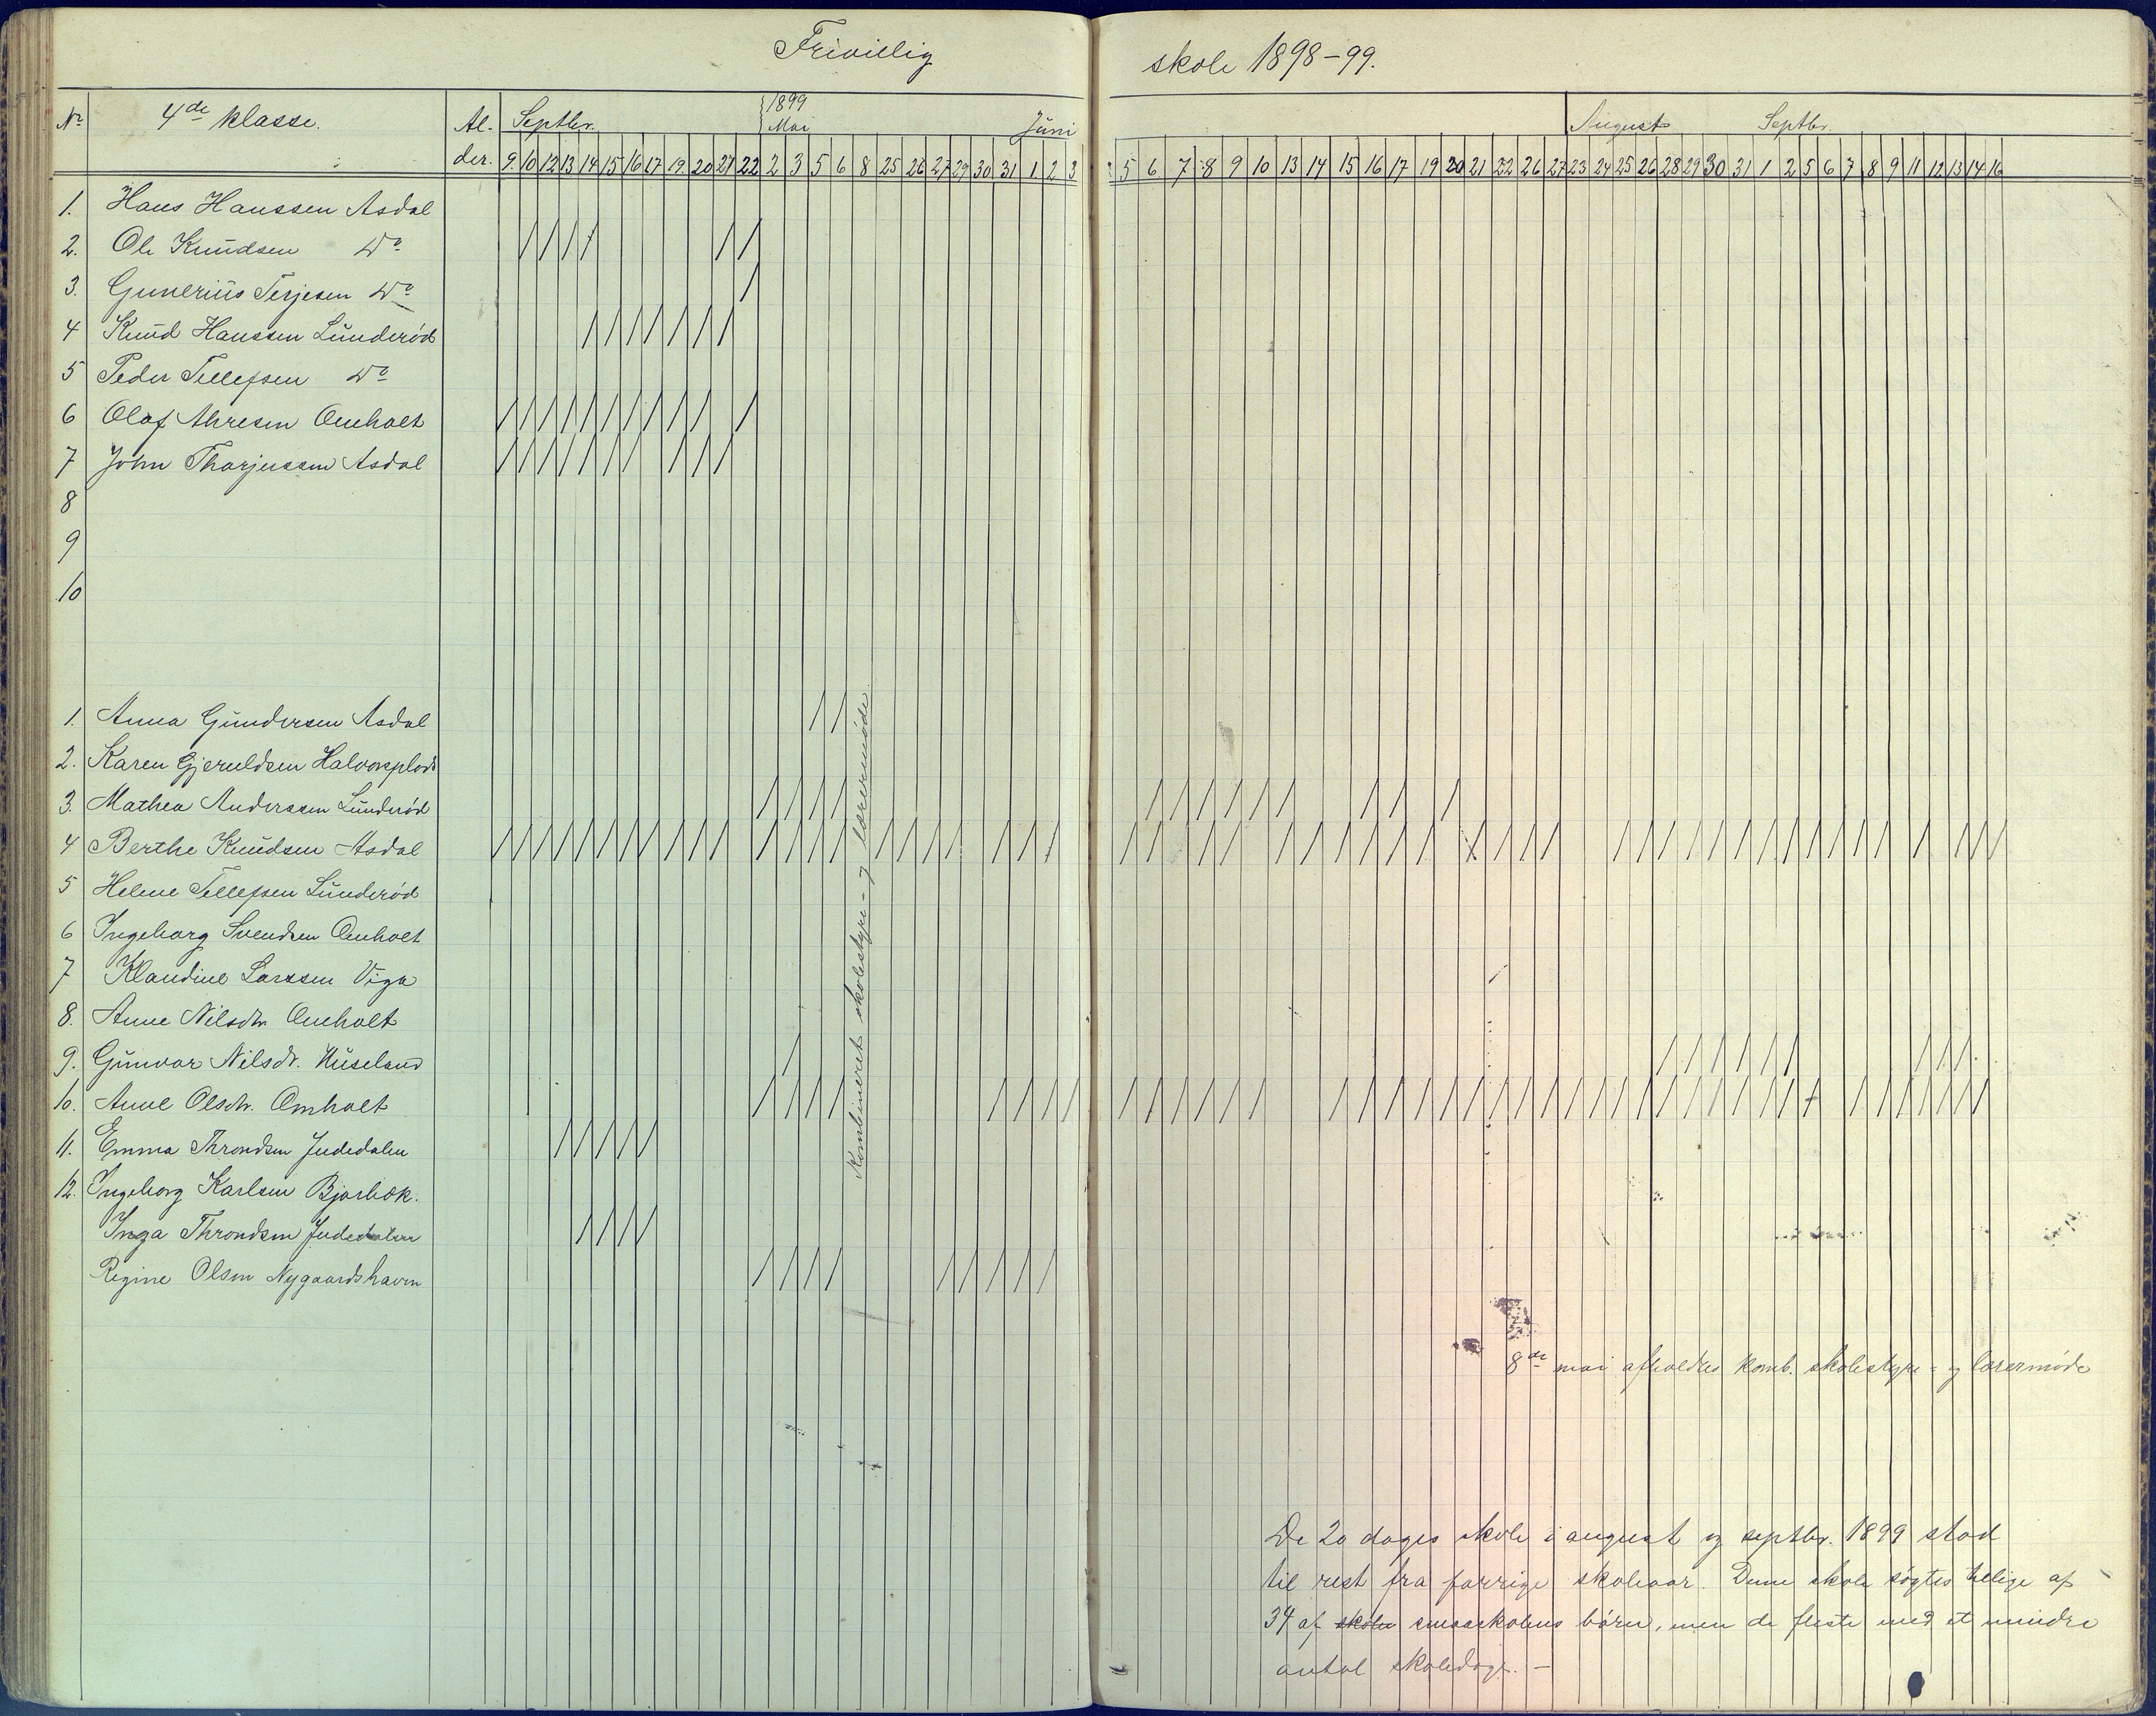 Frivillig skole 1898-99.
No 4de klasse. Al-der. Septbr. 1899 Mai Juni August Septbr.
9. 10 12 13 14 15 16 17 19 20 21 22 2 3 5 6 8 25 26 27 29 30 31 1 2 3 5 6 7 8 9 10 13 14 15 16 17 19 20 21 22 26 27 23 24 25 26 28 29 30 31 1 2 5 6 7 8 9 11 12 13 14 16
1. Hans Hanssen Asdal
2. Ole Knudsen Do
3. Gunerius Terjesen Do
4 Knud Hanssen Lunderød
5 Peder Tellefsen Do
6 Olaf Omholt
7 John Thorjussen Asdal
8
9
10
1. Anna Gundersen Asdal
2. Karen Gjeruldsen
3. Mathea Anderssen Lunderød
4 Berthe Knudsen Asdal
5 Helene Tellefsen Lunderød
6 Ingeborg Svendsen Omholt
7 Klaudine Larssen Viga
8. Anne Nilsdtr. Omholt
9. Gunvor Nilsdt. Huseland
10. Anne Olsdtr. Omholt
11. Emma Throndsen Judedalen
12. Ingeborg Karlsen Bjorbæk.
Inga Throndsen Judedalen
Regine Olsen Nygaardshavn
Kombineret skolestyre- og lærermøde.
8de mai afholdtes komb. skolestyre- og lærermøde
De 20 dages skole i august og septbr. 1899 stod
til rest fra forrige skoleaar. Denne skole søgtes tillige af
34 af skolen smaaskolens børn, men de fleste med et mindre
antal skoledage. -